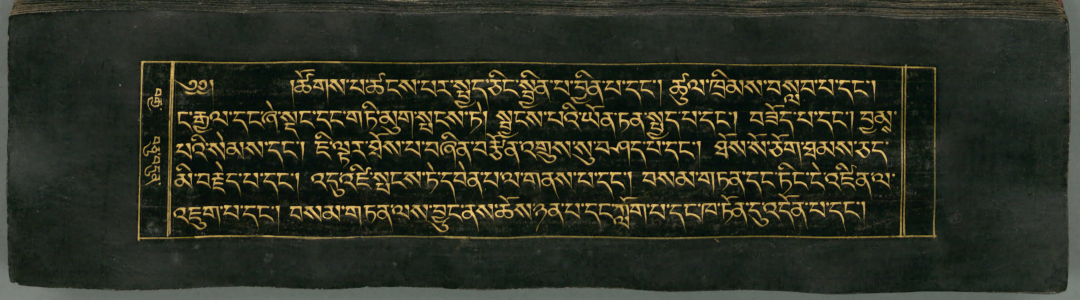 ༄༅། །ཚོགས་པ་ཚངས་པར་སྤྱད་ཅིང་སྦྱིན་པ་བྱིན་པ་དང་། ཚུལ་ཁྲིམས་བསླབ་པ་དང་།
ང་རྒྱལ་དང་ཞེ་སྡང་དང་གཏི་མུག་སྤངས་ཏེ། སྦྱངས་པའི་ཡོན་ཏན་སྤྱད་པ་དང་། བཟོད་པ་དང་། བྱམས་
པའི་སེམས་དང་། ཇི་ལྟར་ཐོས་པ་བཞིན་བརྩོན་འགྲུས་སུ་བཤད་པ་དང་། ཐོས་སོ་ཅོག་ཐམས་ཅད་
མི་བརྗེད་པ་དང་། འདུ་འཛི་སྤངས་ཏེ་དབེན་པ་ལ་གནས་པ་དང་། བསམ་གཏན་དང་ཏིང་ངེ་འཛིན་ལ་
འཇུག་པ་དང་། བསམ་གཏན་ལས་བྱུང་ནས་ཆོས་ཉན་པ་དང་ཀློག་པ་དང་ཁ་ཏོན་དུ་འདོན་པ་དང་།